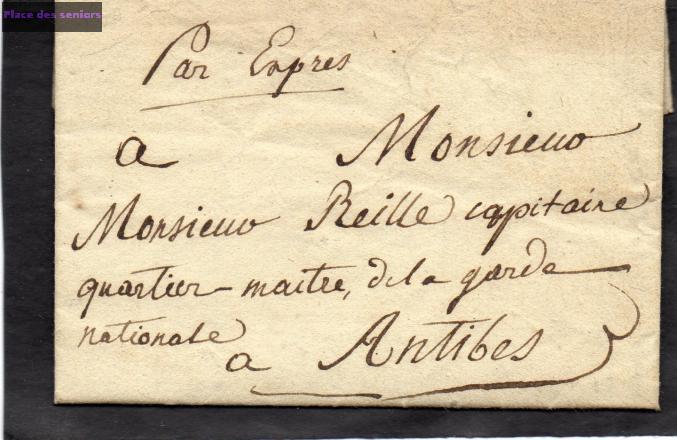 Place des seniors
Par Exprès
a Monsieur
Monsieur Reille capitaine
quartier-maitre, de la garde
nationale
a Antibes